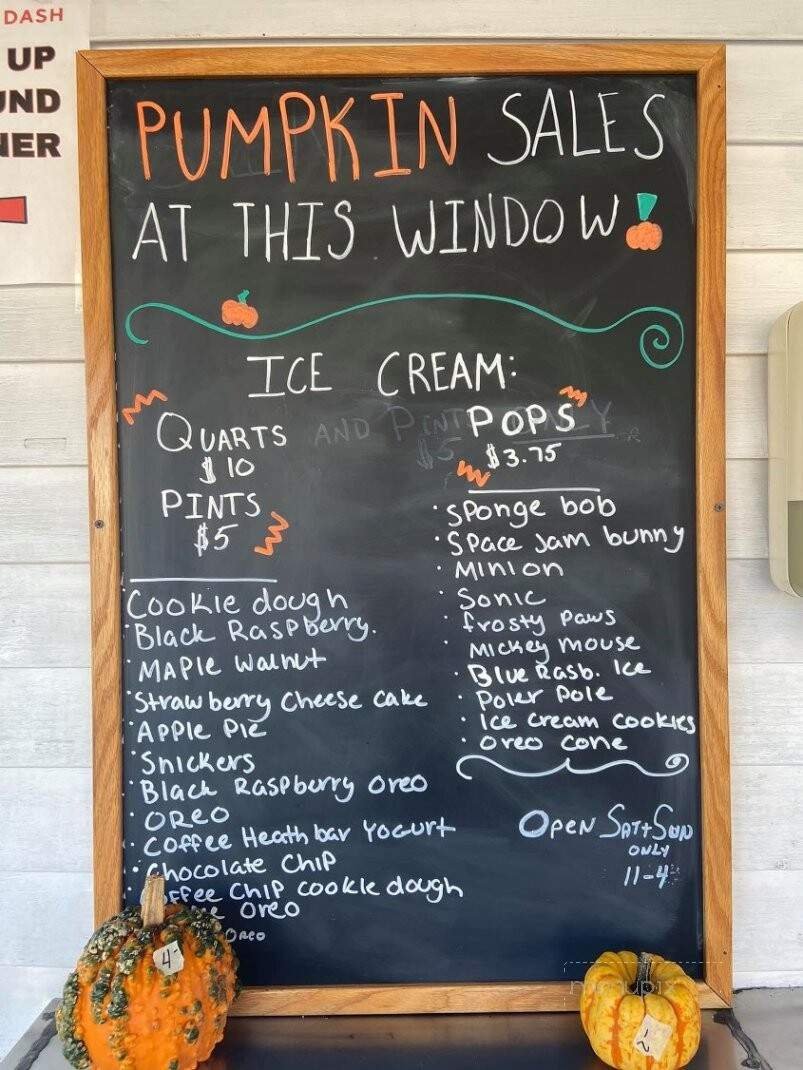 DASH
UP
UND
NER
PUMPKIN SALES
AT THIS WINDOW!
ICE CREAM:
QUARTS
$10
PINTS
$5
Cookie dough
Black Raspberry.
Maple Walnut
Strawberry Cheese Cake
Apple Pie
Snickers
Black Raspberry Oreo
Oreo
Coffee Heath bar Yogurt
Chocolate Chip
offee Chip Cookie dough
Oreo
Oreo
AND PINTS
$5
POPS
$3.75
Sponge bob
Space Jam bunny
Minion
Sonic
frosty Paws
Mickey mouse
Blue Rasb. Ice
Poler Pole
Ice Cream Cookies
Oreo Cone
OPEN SAT+SUN
ONLY
11-4
4-
2-
menupix